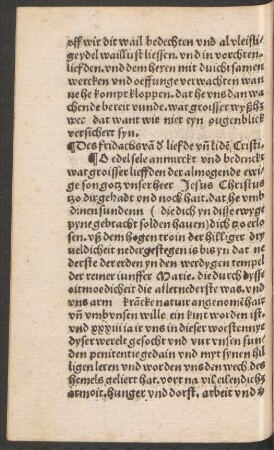 off wir dit wail bedechten vnd al vleisli-
gey del wail lust liessen. vnd in vorchten.
liefden. vnd dem hexen mit duicht samen
wercken vnd oeffunge verwachten wan
ne he kompt kloppen. dat he vns dan wa
chende bereit vunde. wat groisser wyßhz
wec dat want wie nier eyn ougenblick
versichert syn.
¶ Des fridachs vā d̄ liefde vn̄ lidē Cristi.
¶ O edel sele anmirckt vnd bedenckt
wat groisser lieffden der almogende ewi
ge son gotz vnser heer Jesus Christus
tzo dir gehadt vnd noch hait. dat he vmb
dinen sunden nn ( die dich yn disse ewyge
pyne gebracht solden hauen) dich tzo erlo
sen. vß dem hogen troin der hilliger dry
ueldicheit nedergestegen is bis yn dat ne
derste der erden yn den werdygen tempel
der reiner iunffer Marie. die durch dysse
oitmoedicheit die allernederste was. vnd
vns arm krācke natuir angenomē hait
vn̄ vmb vnsen wille ein kint worden ist.
vnd xxxiii ia ir vns in dieser woestennye
dyser werelt gesocht vnd vur vnsen sun
den penitentie gedain vnd myt synen hil
ligen leren vnd worden vns den wech. des
hemels geliert hat. vort na vil eilendichz
armoit. hunger vnd dorst. arbeit vnd